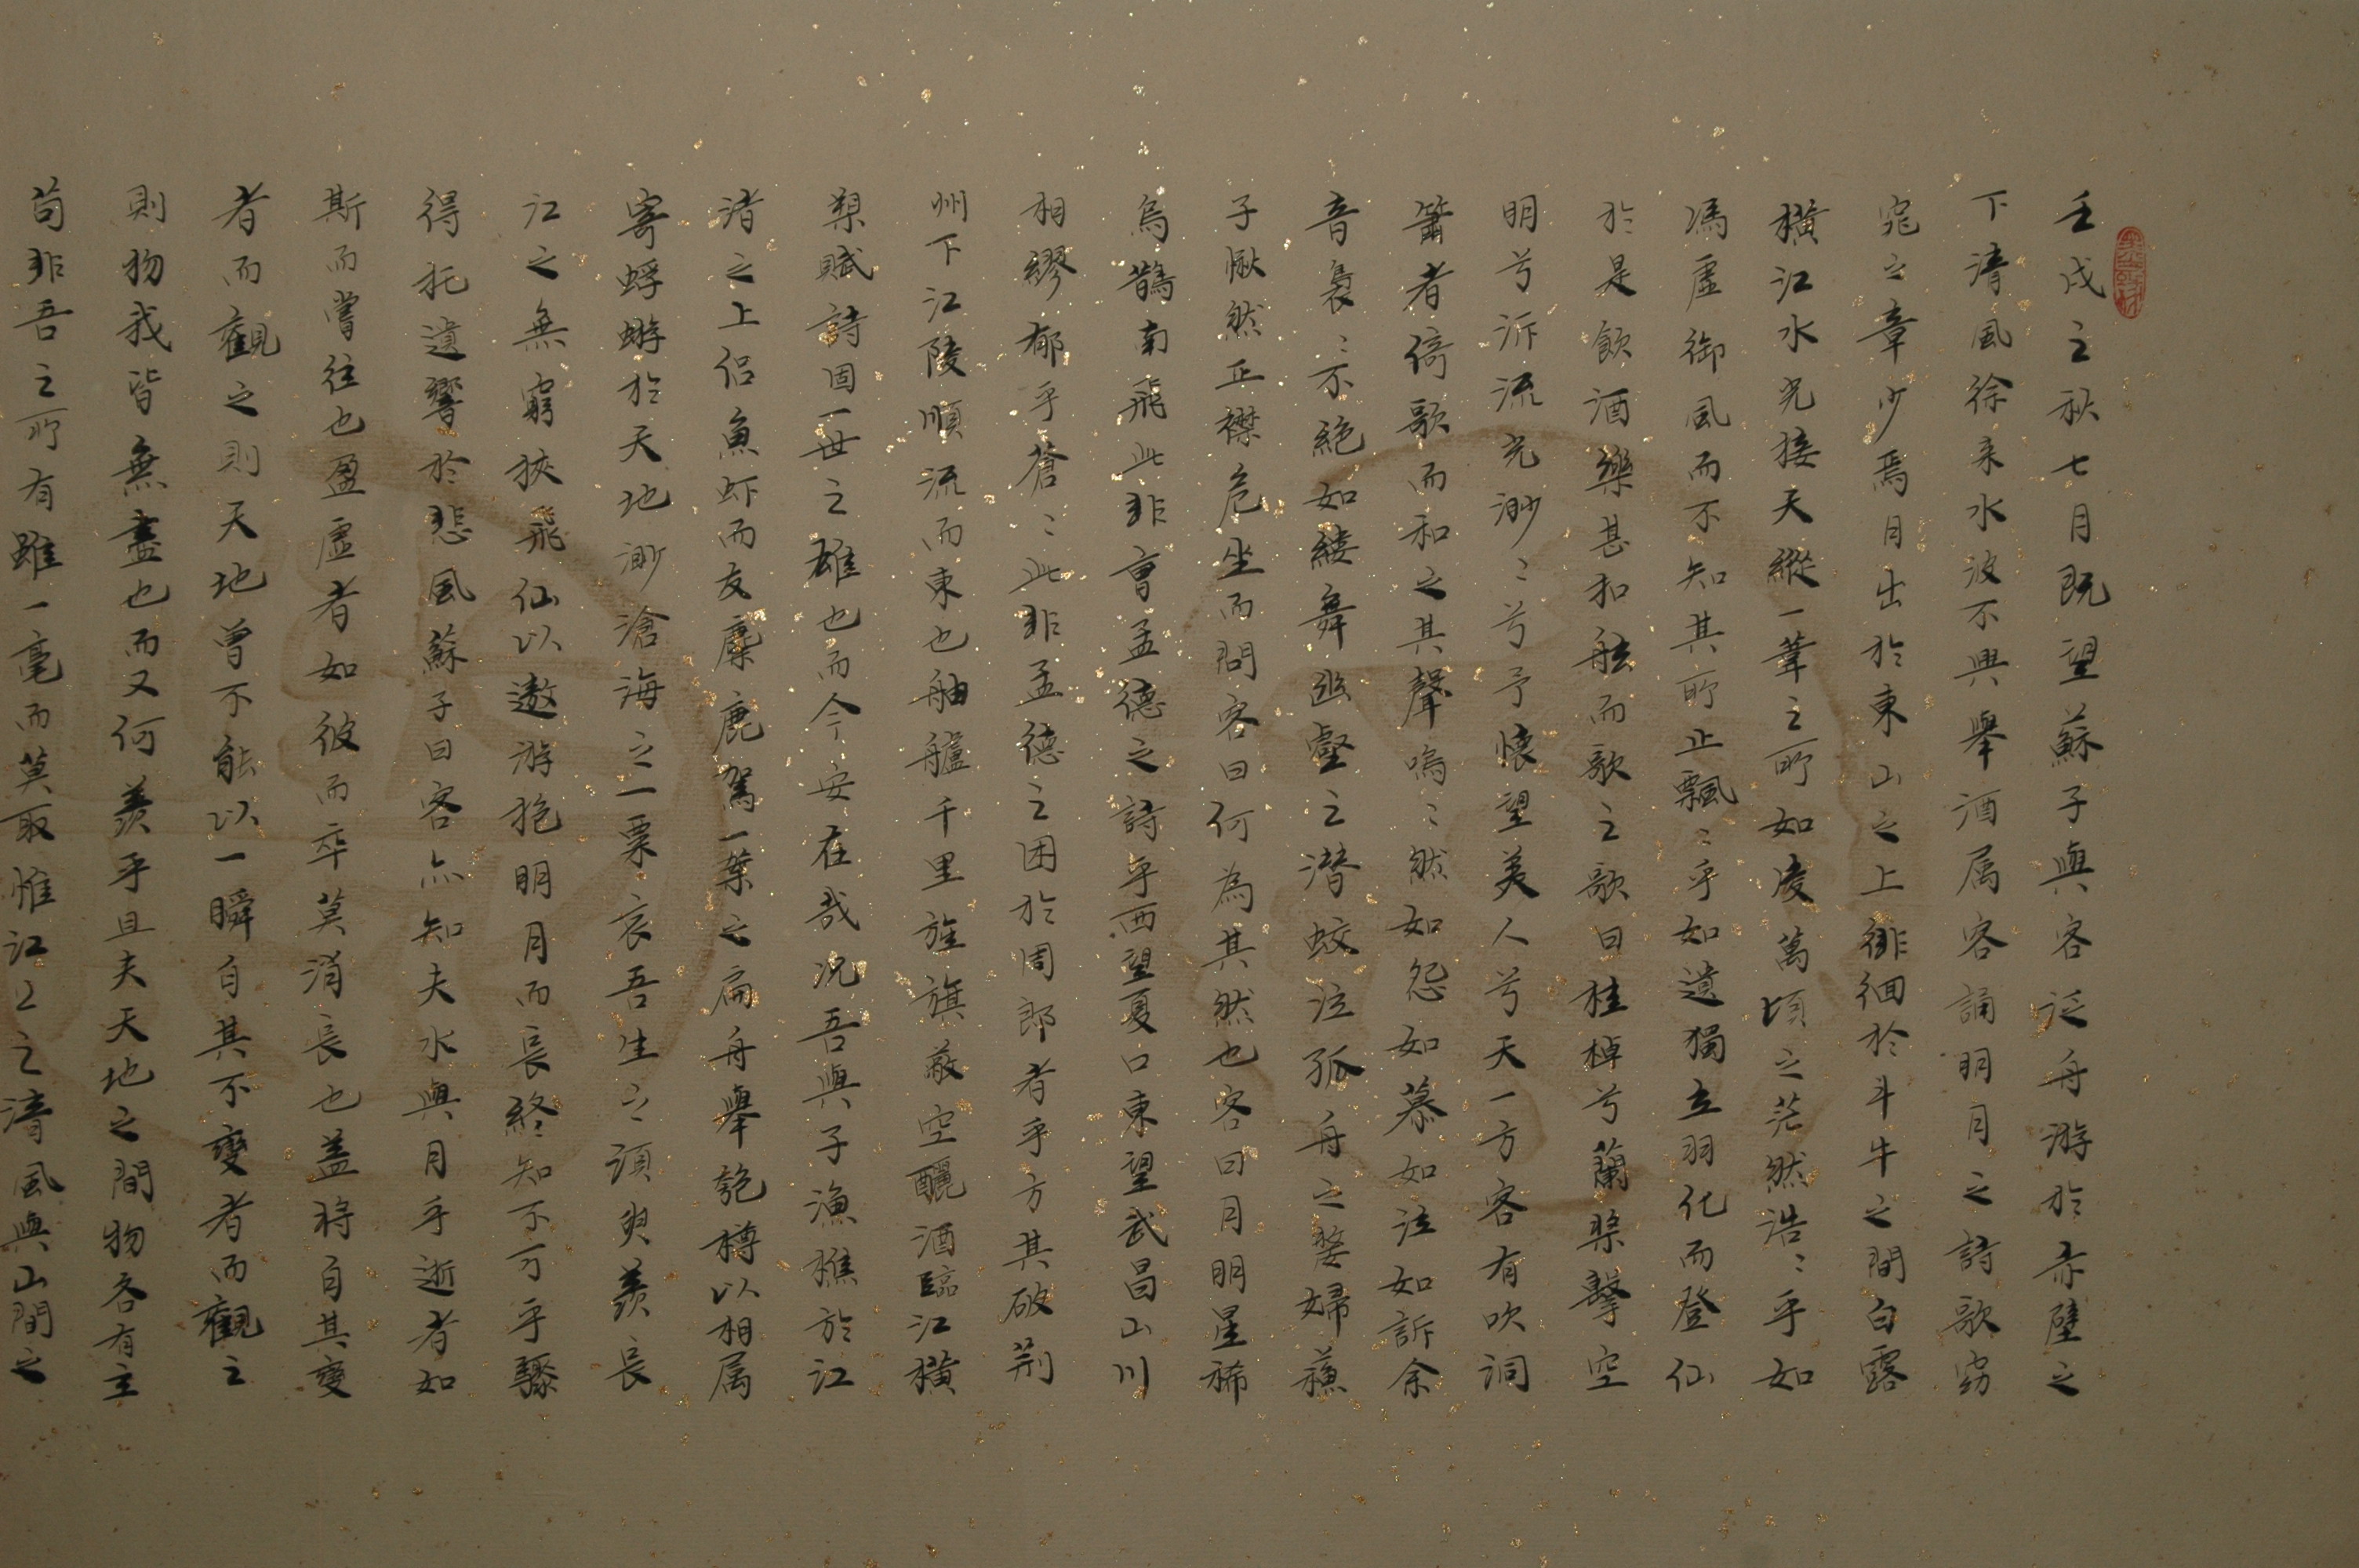 壬戌之秋七月既望蘇子與客泛舟游於赤壁之
下清風徐来水波不興舉酒屬客誦明月之詩歌窈
窕之章少焉月出於東山之上徘徊於斗牛之間白露
橫江水光接天縱一葦之所如凌萬頃之茫然浩〻乎如
馮虛御風而不知其所止飄〻乎如遺獨立羽化而登仙
於是飲酒樂甚扣舷而歌之歌曰桂棹兮蘭槳擊空
明兮泝流光渺〻兮予懷望美人兮天一方客有吹洞
簫者倚歌而和之其聲嗚〻然如怨如慕如泣如訴余
音裊〻不絕如縷舞幽壑之潛蛟泣孤舟之嫠婦蘇
子愀然正襟危坐而問客曰何為其然也客曰月明星稀
烏鵲南飛此非曹孟德之詩乎西望夏口東望武昌山川
相繆郁乎蒼〻此非孟德之困於周郎者乎方其破荊
州下江陵順流而東也舳艫千里旌旗蔽空釃酒臨江橫
槊賦詩固一世之雄也而今安在哉況吾與子漁樵於江
渚之上侣魚虾而友麋鹿駕一葉之扁舟舉匏樽以相屬
寄蜉蝣於天地渺滄海之一粟哀吾生之須臾羨長
江之無窮挾飛仙以遨游抱明月而長終知不可乎驟
得托遺響於悲風蘇子曰客亦知夫水與月乎逝者如
斯而嘗往也盈虛者如彼而卒莫消長也蓋將自其變
者而觀之則天地曾不能以一瞬自其不變者而觀之
則物我皆無盡也而又何羨乎且夫天地之間物各有主
苟非吾之所有雖一毫而莫取惟江上之清風與山間之